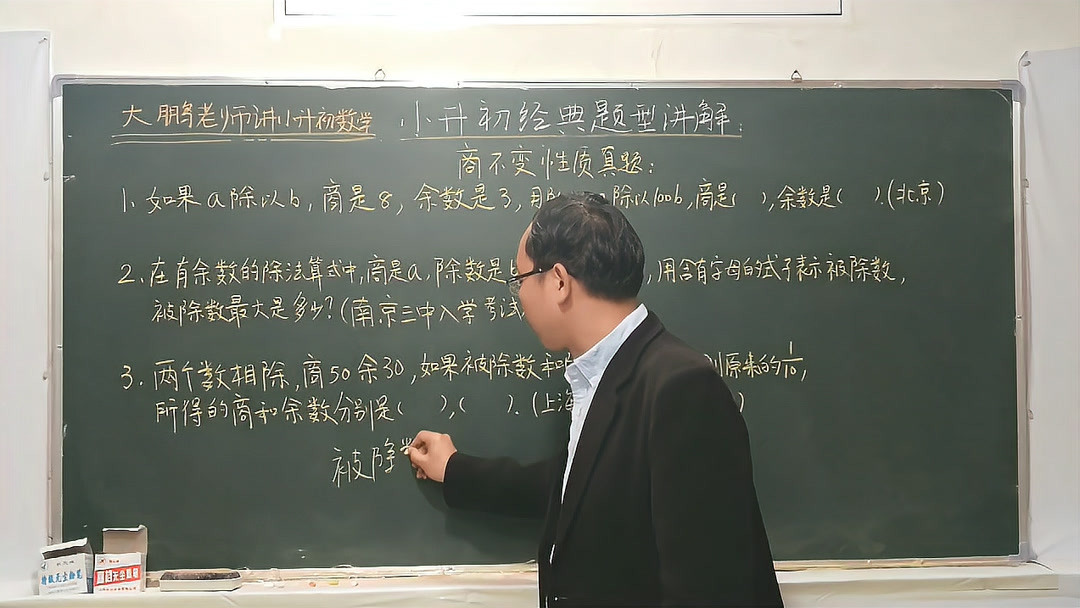 大鹏老师讲小升初数学 小升初经典题型讲解
商不变性质真题:
1. 如果a除以b, 商是8, 余数是3, 用 除以100b, 商是( ), 余数是( ). (北京)
2. 在有余数的除法算式中, 商是a, 除数是b , 用含有字母的式子表示被除数,
被除数最大是多少? (南京三中入学考试
3. 两个数相除, 商50余30, 如果被除数和 到原来的1/10,
所得的商和余数分别是( ), ( ). (上海 )
被除